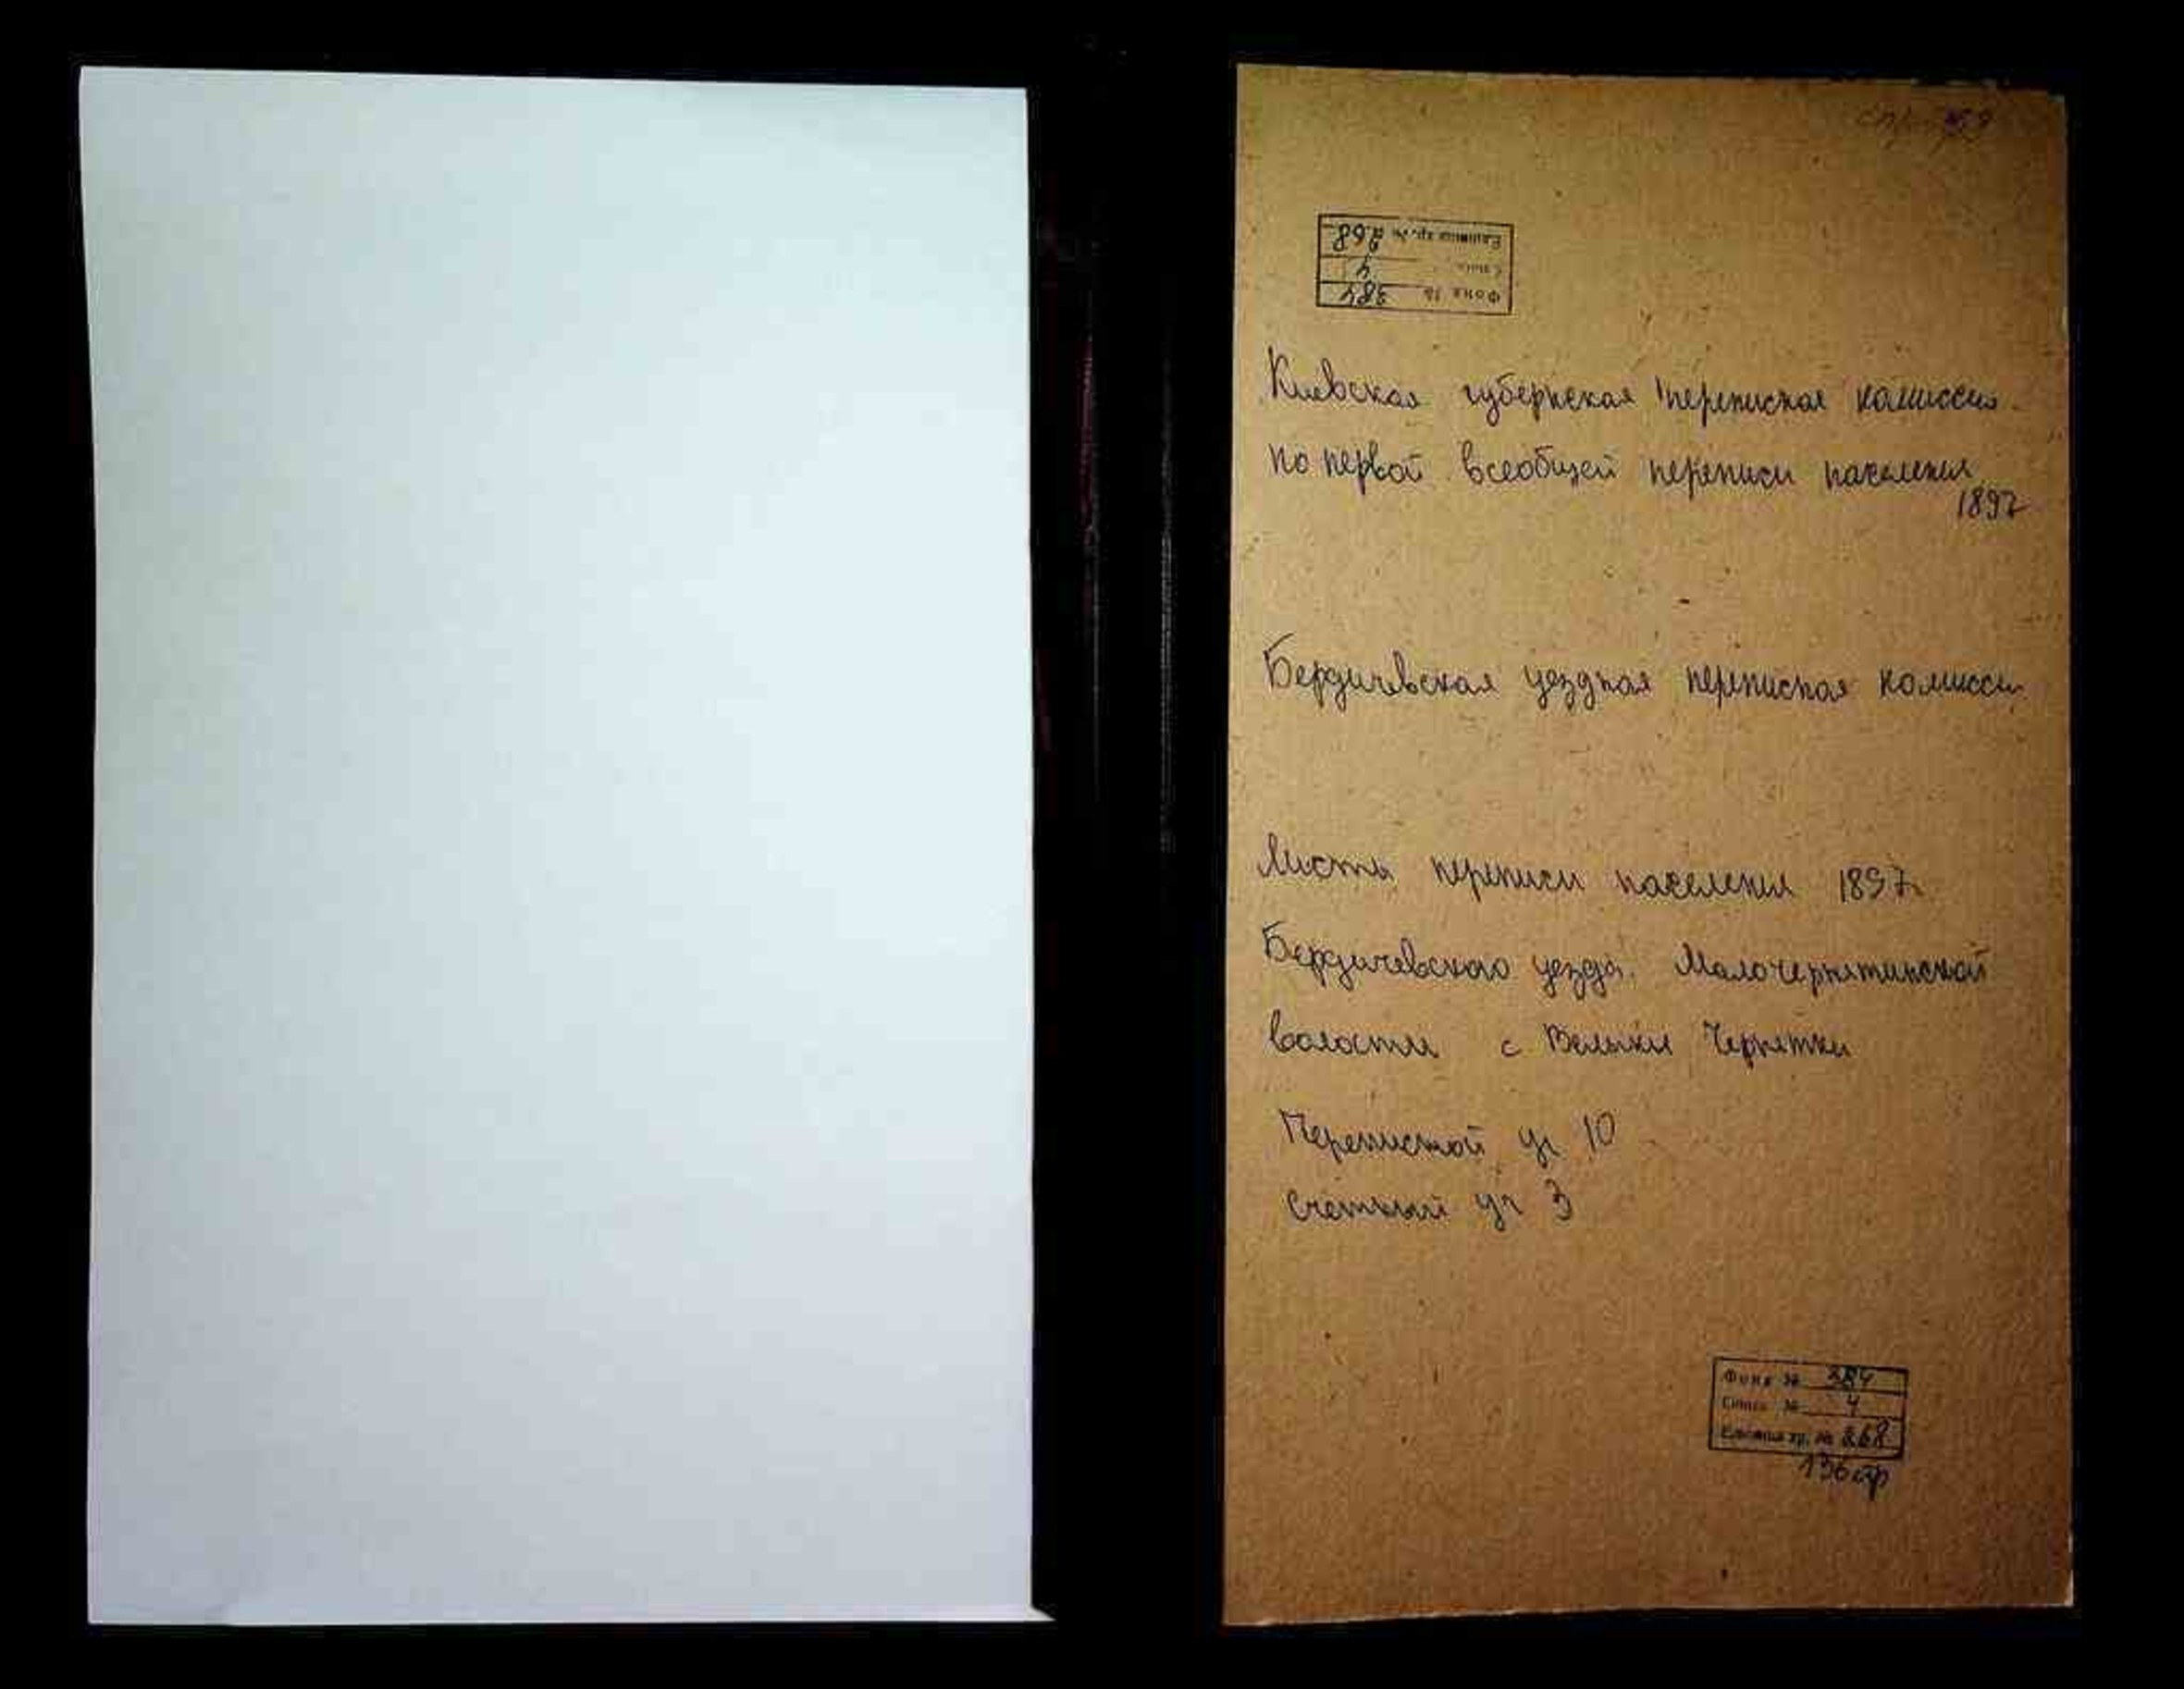 Единица хр. № 268
4
Фонд № 384
Киевская губернская переписная комиссия
по первой всеобщей переписи населения
1897
Бердичевская уездная переписная комиссия
Листы переписи населения 1897
Бердичевского уезда. Малочернятинской
волости с Велыки Чернятки
Переписной уч 10
Счетный уч 3
Фонд № 384
Опись № 4
Единица хр. № 268
136 стр